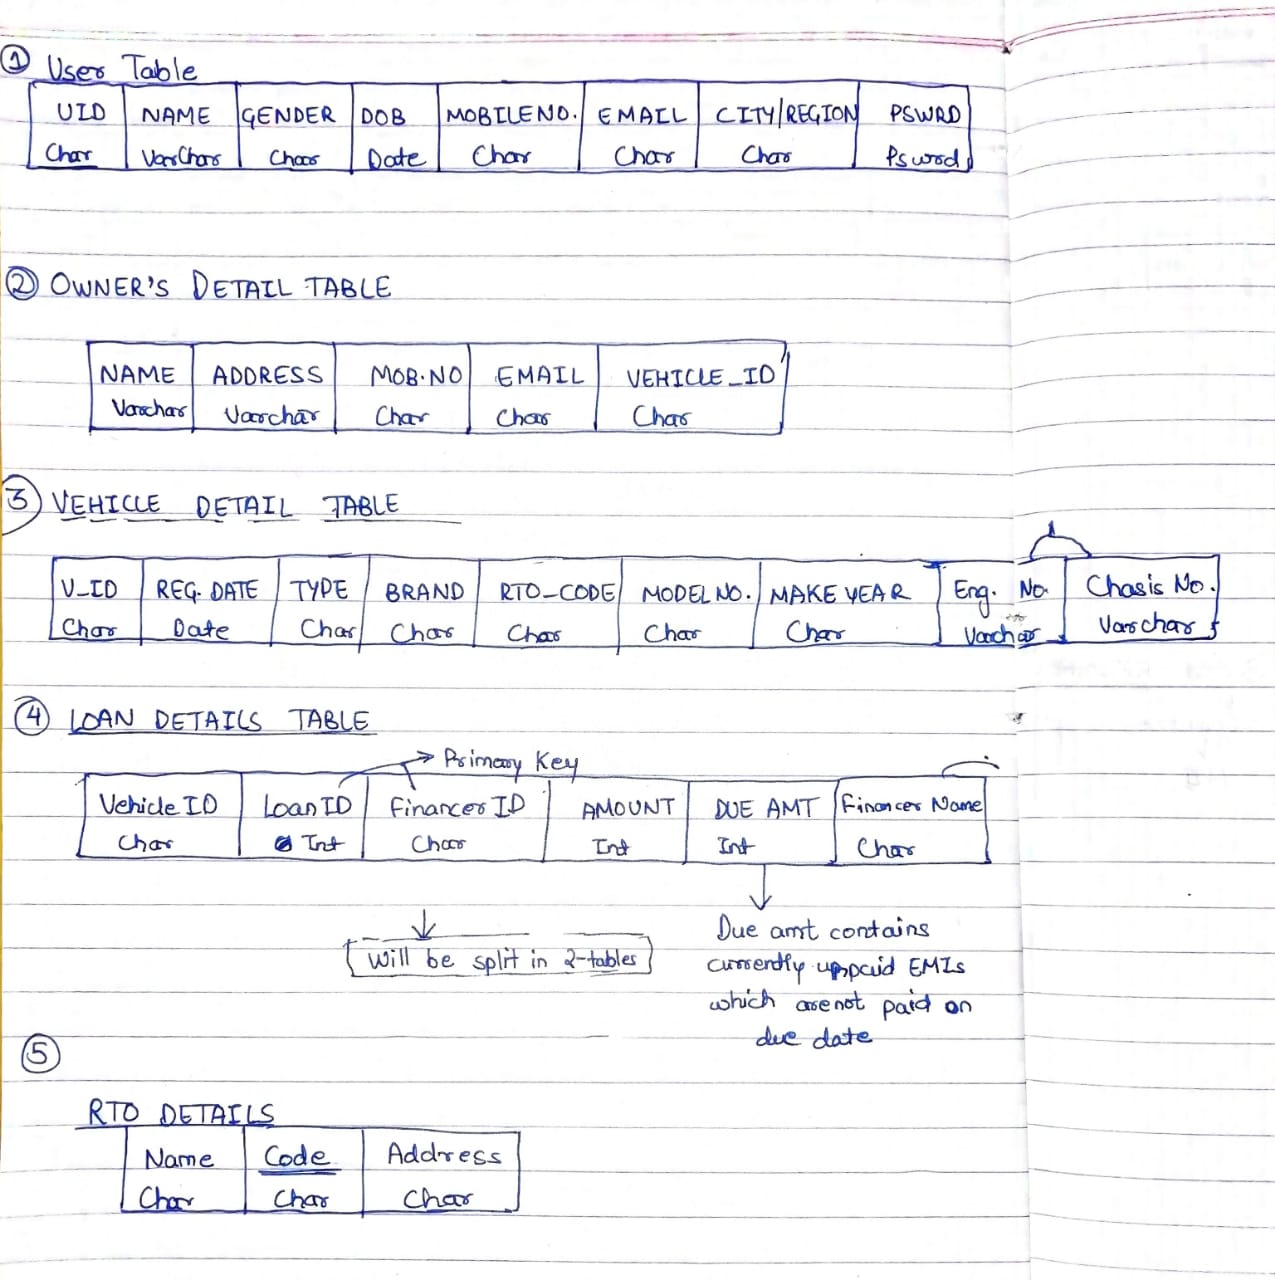 ① User Table
UID NAME GENDER DOB MOBILENO. EMAIL CITY/REGION PSWRD
Char VarChar Char Date Char Char Char Pswrd
② OWNER'S DETAIL TABLE
NAME ADDRESS MOB.NO EMAIL VEHICLE_ID
Varchar Varchar Char Char Char
③ VEHICLE DETAIL TABLE
V_ID REG. DATE TYPE BRAND RTO_CODE MODEL NO. MAKE YEAR Eng. No. Chasis No.
Char Date Char Char Char Char Char Varchar Varchar
④ LOAN DETAILS TABLE
Primary Key
Vehicle ID Loan ID Financer ID AMOUNT DUE AMT Financer Name
Char Int Char Int Int Char
Will be split in 2-tables
Due amt contains
currently unpaid EMIs
which are not paid on
due date
⑤
RTO DETAILS
Name Code Address
Char Char Char